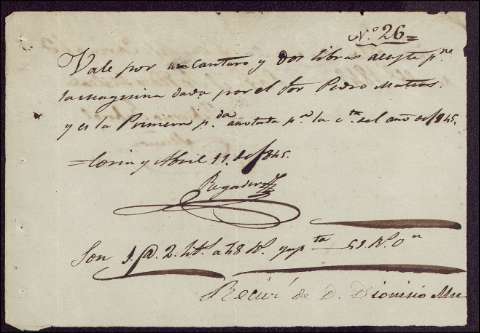 Nº. 26=
Vale por un cantaro y dos libras aceyte pª.
la maquina dada por el Sor Pedro Mateos
y es la Primera p.da anotada pª la c.ta del año de 1845.
= Coria y Abril 11. de 1845.
Regadera
Son 1. @. 2. lb.s a 48 R.s ymp.ta 51 R.s vn
Recivi de D. Dionisio